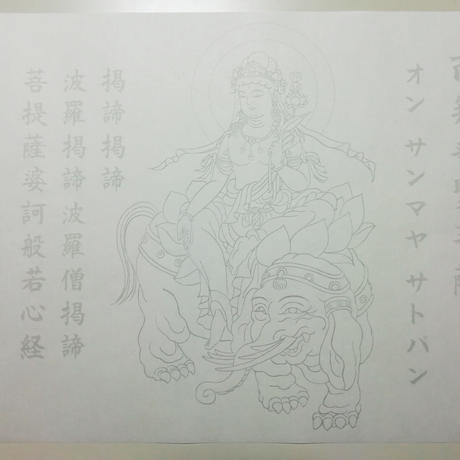 オン サンマヤ サトバン
掲諦掲諦
波羅掲諦波羅僧掲諦
菩提薩婆訶般若心経